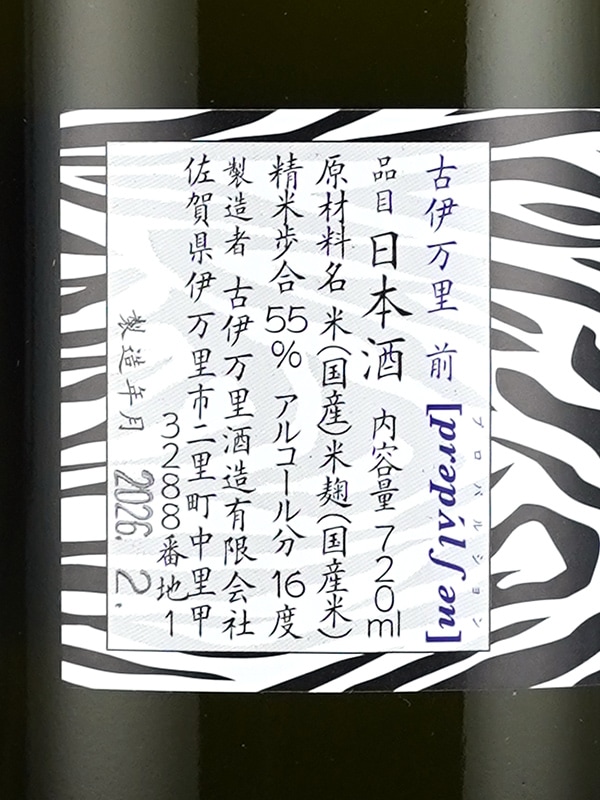 古伊万里 前 [prəpʌ́lʃən]
プロパルション
品目 日本酒 内容量 720ml
原材料名 米(国産)米麹(国産米)
精米歩合 55% アルコール分 16度
製造者 古伊万里酒造有限会社
佐賀県伊万里市二里町中里甲
3288番地1
製造年月 2026. 2.